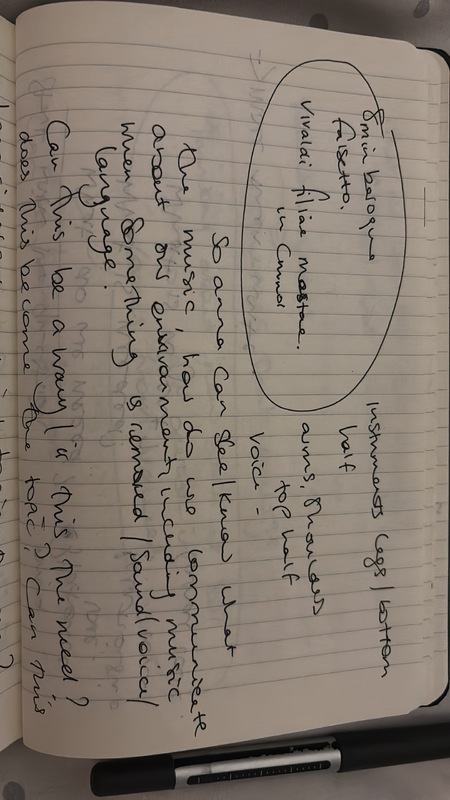 8min baroque
falsetto.
Vivaldi filliae mastae.
in
Instruments legs/bottom
half
arms, shoulders
top half
voice -
So anna can see/know what
the music, how do we communicate
about our environment, including music
when something is removed / sound/voice/
language.
Can this be a way / is this the need?
does this become the topic? Can this